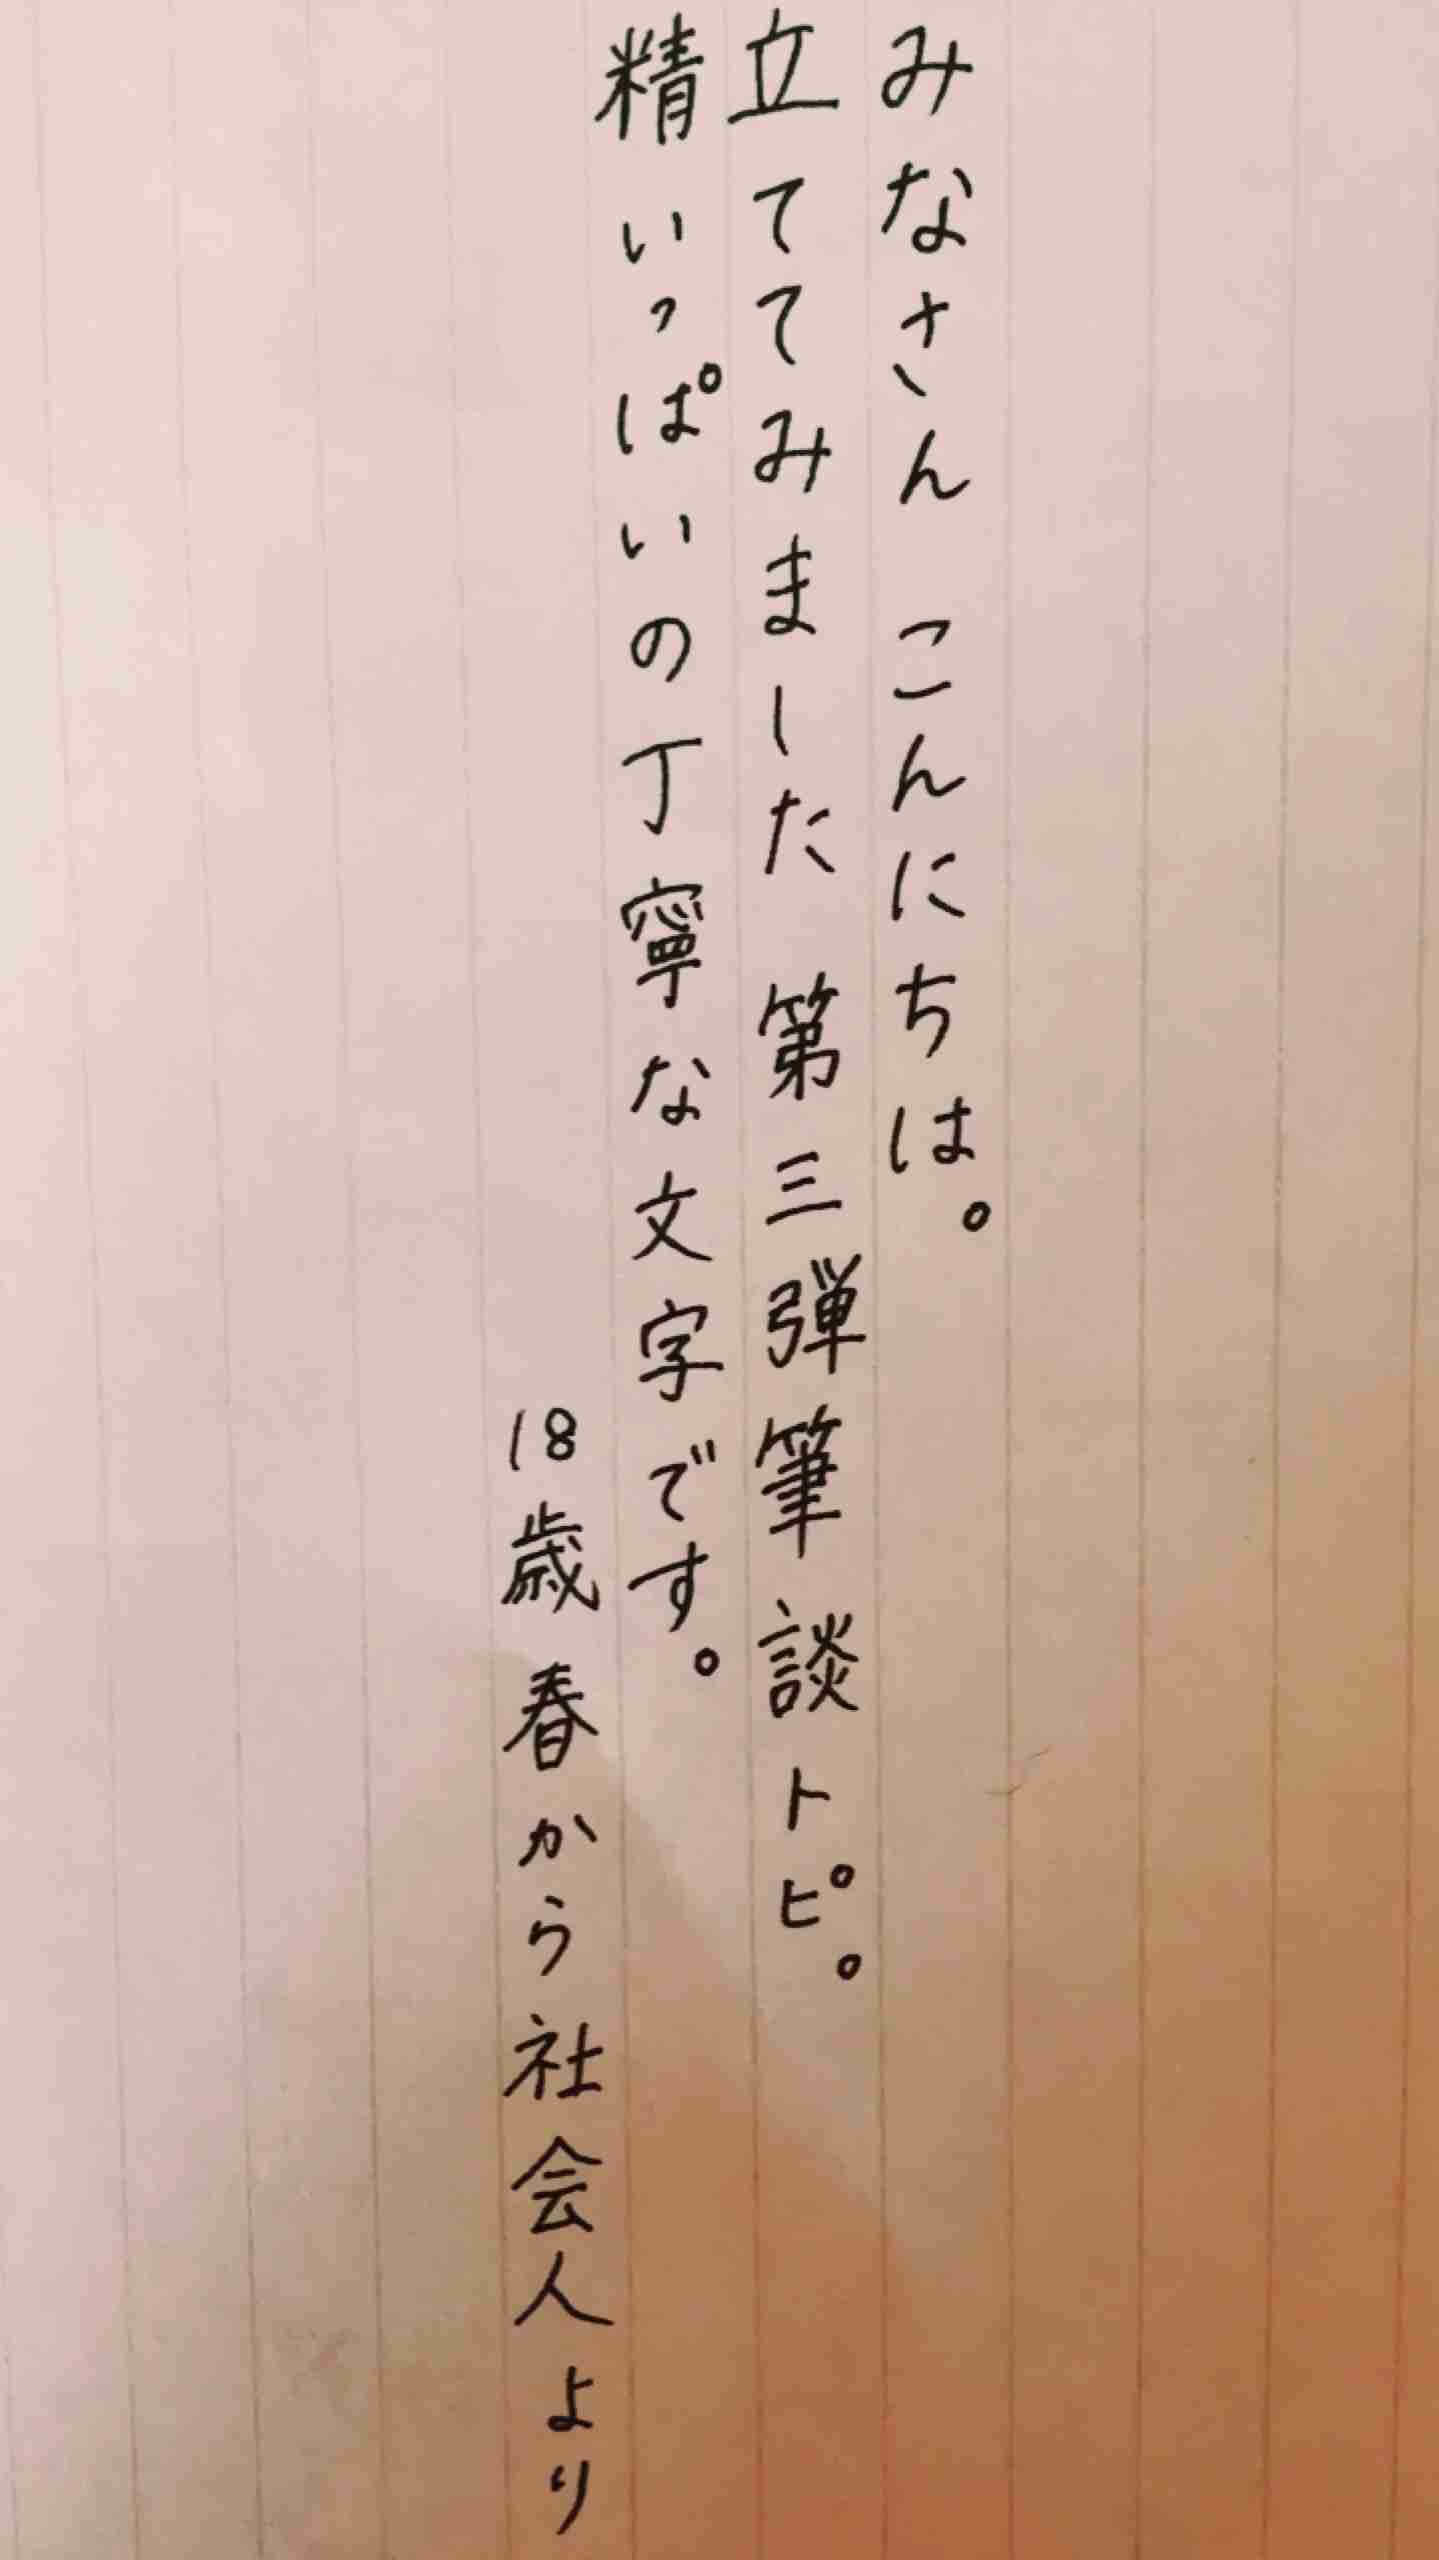 みなさん　こんにちは。
立ててみました　第三弾筆談トピ。
精いっぱいの丁寧な文字です。
18歳春から社会人より